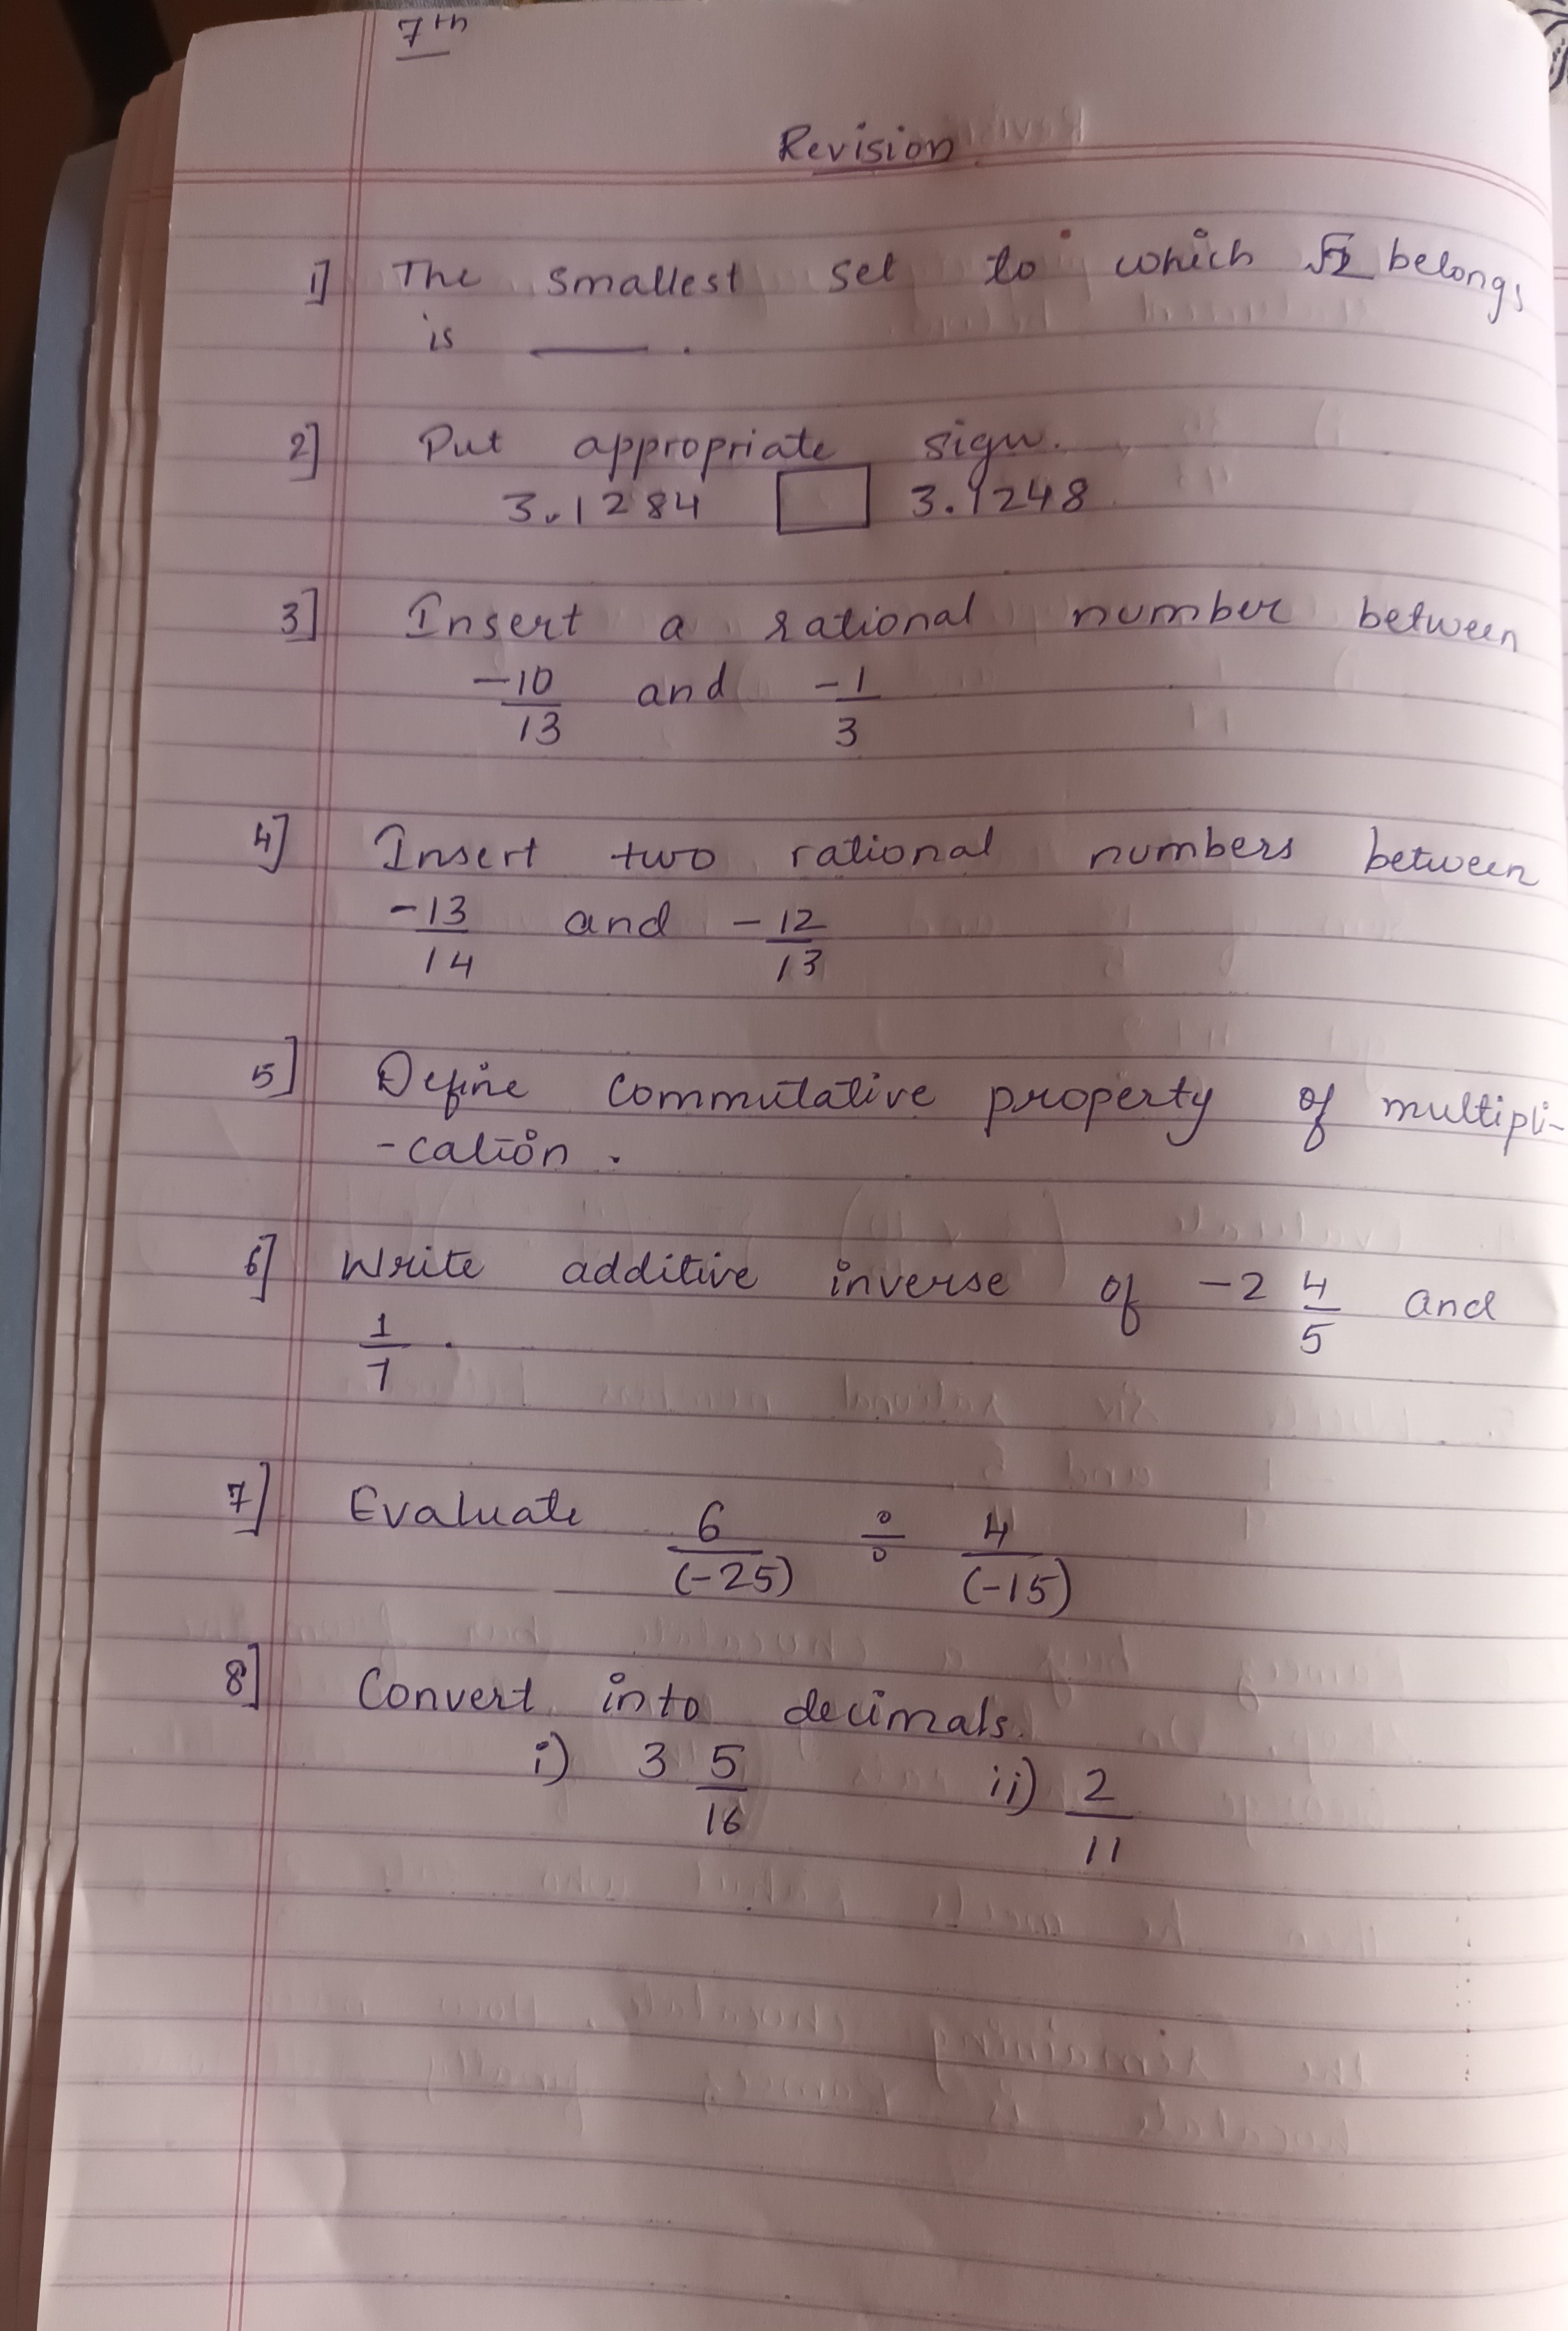 7th
Revision
1] The smallest set to which √2 belongs
is ___ .
2] Put appropriate sign.
3.1284 □ 3.1248
3] Insert a rational number between
-10/13 and -1/3
4] Insert two rational numbers between
-13/14 and -12/13
5] Define Commutative property of multipli-
-cation .
6] Write additive inverse of -2 4/5 and
1/7 .
7] Evaluate 6/(-25) ÷ 4/(-15)
8] Convert into decimals.
i) 3 5/16 ii) 2/11